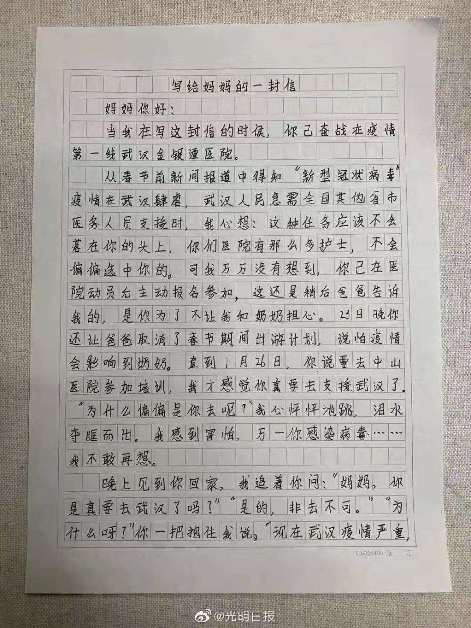 写给妈妈的一封信
妈妈你好：
当我在写这封信的时候，你已奋战在疫情
第一线武汉金银潭医院。
从春节前新闻报道中得知“新型冠状病毒”
疫情在武汉肆虐，武汉人民急需全国其他省市
医务人员支援时，我心想：这种任务应该不会
落在你的头上，你们医院有那么多护士，不会
偏偏选中你的。可我万万没有想到，你已在医
院动员后主动报名参加，这还是稍后爸爸告诉
我的，是你为了不让我和奶奶担心。23日晚你
还让爸爸取消了春节期间出游计划，说怕疫情
会影响到奶奶。直到1月26日，你说要去中山
医院参加培训，我才感觉你真要去支援武汉了。
“为什么偏偏是你去呢？”我心怦怦地跳，泪水
夺眶而出。我感到害怕，万一你感染病毒……
我不敢再想。
晚上见到你回家，我追着你问：“妈妈，你
是真要去武汉了吗？”“是的，非去不可。”“为
什么呀？”你一把搂住我说。“现在武汉疫情严重，
@光明日报